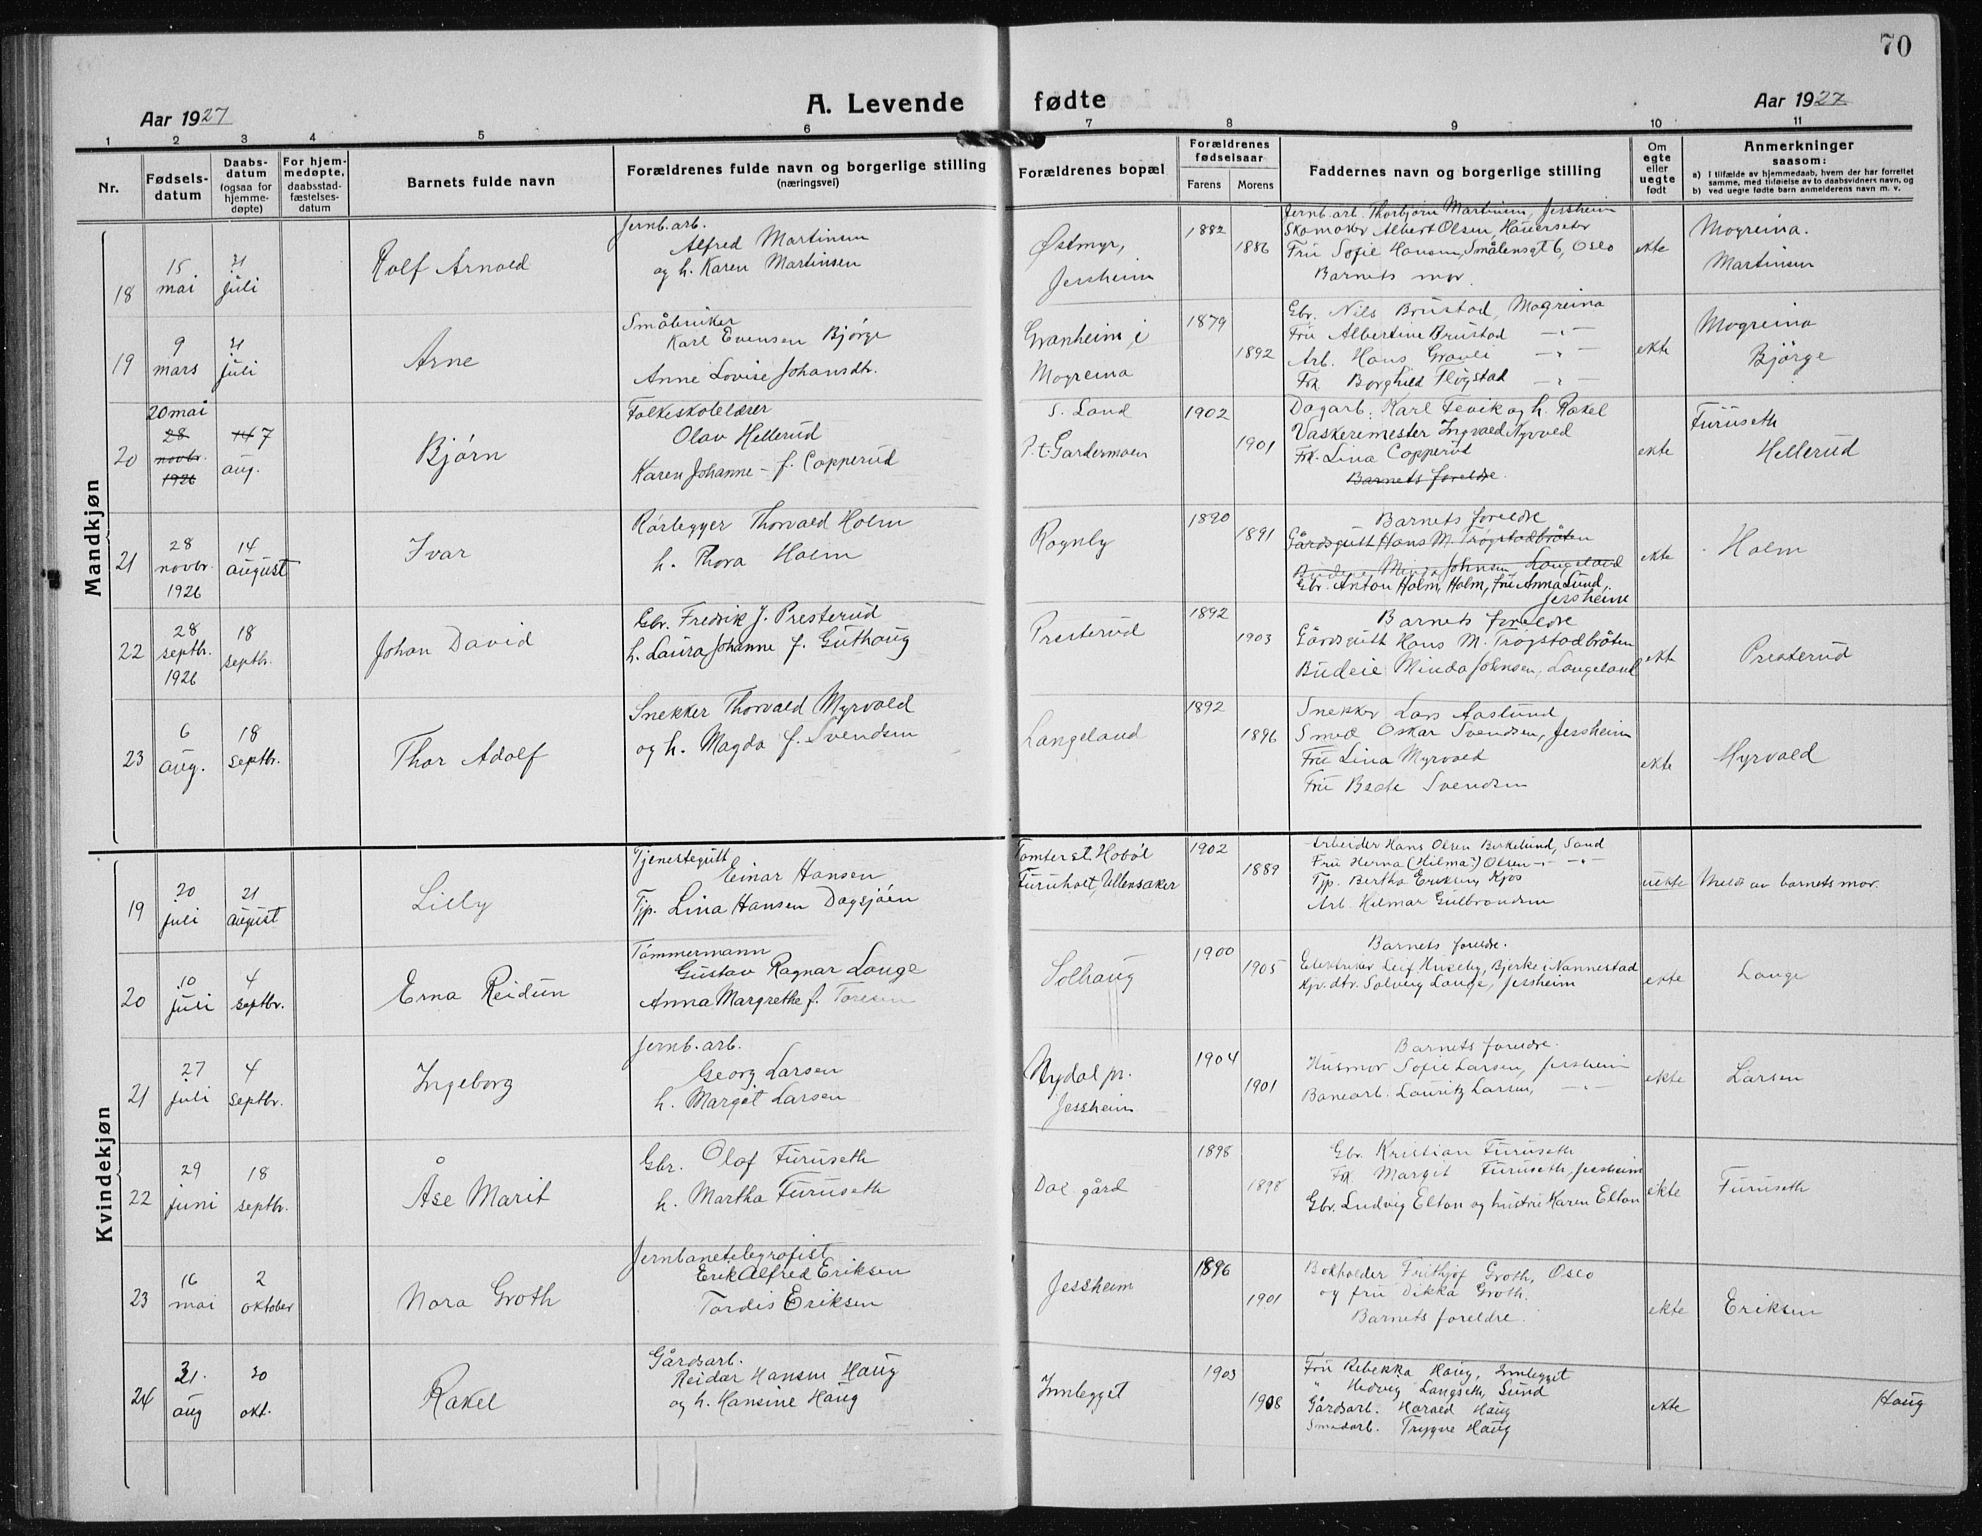 70
Aar 1927
A. Levende fødte
Aar 1927
1 2 3 4 5 6 7 8 9 10 11
Nr.
Fødsels-
datum
Daabs-
datum
(ogsaa for
hjemme-
døpte)
For hjem-
medøpte,
daabsstad-
fæstelses-
datum
Barnets fulde navn
Forældrenes fulde navn og borgerlige stilling
(næringsvei)
Forældrenes bopæl
Forældrenes
fødselsaar
Farens Morens
Faddernes navn og borgerlige stilling
Om
egte
eller
uegte
født
Anmerkninger
saasom:
a) I tilfælde av hjemmedaab, hvem der har forrettet
samme, med tilføielse av to daabsvidners navn, og
b) ved uegte fødte barn anmelderens navn m. v.
Mandkjøn
18
15
mai
31
juli
Rolf Arnold
Jernb.arb.
Alfred Martinsen
og h. Karen Martinsen
Østmyr,
Jessheim
1882
1886
Jernb.arb. Thorbjørn Martinsen, Jessheim
Skomaker Albert Olsen, Hauerseter
Fru Sofie Hansen, Smålensgt 6, Oslo
Barnets mor.
ekte
Mogreina.
Martinsen
19
9
mars
31
juli
Arne
Småbruker
Karl Evensen Bjørge
Anne Lovise Johansdtr.
Granheim i
Mogreina
1879
1892
Gbr. Nils Brustad, Mogreina
Fru Albertine Brustad -"-
Arb. Hans Gravli -"-
Frk. Borghild Fløgstad -"-
ekte
Mogreina
Bjørge
20
20 mai
28
novbr.
1926
14 7
aug.
Bjørn
Folkeskolelærer
Olav Hellerud
Karen Johanne - f. Copperud
S. Land
P.t. Gardermoen
1902
1901
Dagarb. Karl Fevik og h. Rakel
Vaskeremester Ingvald Nyvold
Frk. Lina Copperud
Barnets foreldre.
ekte
Furuseth
Hellerud
21
28
novbr.
1926
14
august
Ivar
Rørlegger Thorvald Holm
h. Thora Holm
Rognby
1890
1891
Barnets foreldre
Gårdsgutt Hans M. Trøgstadbråten
Budeie Minda Johnsen, Langeland
Gbr. Anton Holm, Holm, Fru Anna Lund,
Jessheim
ekte
Holm
22
28
septbr.
1926
18
septbr.
Johan David
Gbr. Fredrik J. Presterud
h. Laura Johanne f. Guthaug
Presterud
1892
1903
Barnets foreldre
Gårdsgutt Hans M. Trøgstadbråten
Budeie Minda Johnsen, Langeland
ekte
Presterud
23
6
aug.
18
septbr.
Thor Adolf
Snekker Thorvald Myrvold
og h. Magda f. Svendsen
Langeland
1892
1896
Snekker Lars Aaslund
Smed Oskar Svendsen, Jessheim
Fru Lina Myrvold
Fru Beate Svendsen
ekte
Myrvold
Kvindekjøn
19
20
juli
21
august
Lilly
Tjenestegutt
Einar Hansen
Tjp. Lina Hansen Dagsjøen
Tomter st. Hobøl
Furuholt, Ullensaker
1902
1889
Arbeider Hans Olsen Birkelund, Sand
Fru Herna (Hilma?) Olsen -"- -"-
Tjp. Bertha Eriksen, Kjos
Arb. Hilmar Gulbrandsen
uekte
Meldt av barnets mor.
20
10
juli
4
septbr.
Erna Reidun
Tømmermann
Gustav Ragnar Lange
Anna Margrethe f. Toresen
Solhaug
1900
1905
Barnets foreldre.
Elektriker Leif Huseby, Bjerke i Nannestad
Kjv.dtr. Solveig Lange, Jessheim
ekte
Lange
21
27
juli
4
septbr.
Ingeborg
Jernb.arb.
Georg Larsen
h. Margit Larsen
Nydal pr.
Jessheim
1904
1901
Barnets foreldre.
Husmor Sofie Larsen, Jessheim
Banearb. Lauritz Larsen, -"-
ekte
Larsen
22
29
juni
18
septbr.
Åse Marit
Gbr. Olaf Furuseth
h. Martha Furuseth
Dal gård
1898
1898
Gbr. Kristian Furuseth
Frk. Margit Furuseth, Jessheim
Gbr. Ludvig Elton og hustru Karen Elton
ekte
Furuseth
23
16
mai
2
oktober
Nora Groth
Jernbanetelegrafist
Erik Alfred Eriksen
Tordis Eriksen
Jessheim
1896
1901
Bokholder Frithjof Groth, Oslo
og fru Dikka Groth.
Barnets foreldre.
ekte
Eriksen
24
31.
aug
30
okt.
Rakel
Gårdsarb.
Reidar Hansen Haug
og h. Hansine Haug
Innlegget
1903
1908
Fru Rebekka Haug, Innlegget
" Hedvig Langseth, Lund
Gårdsarb. Harald Haug
Trygve Haug
ekte
Haug